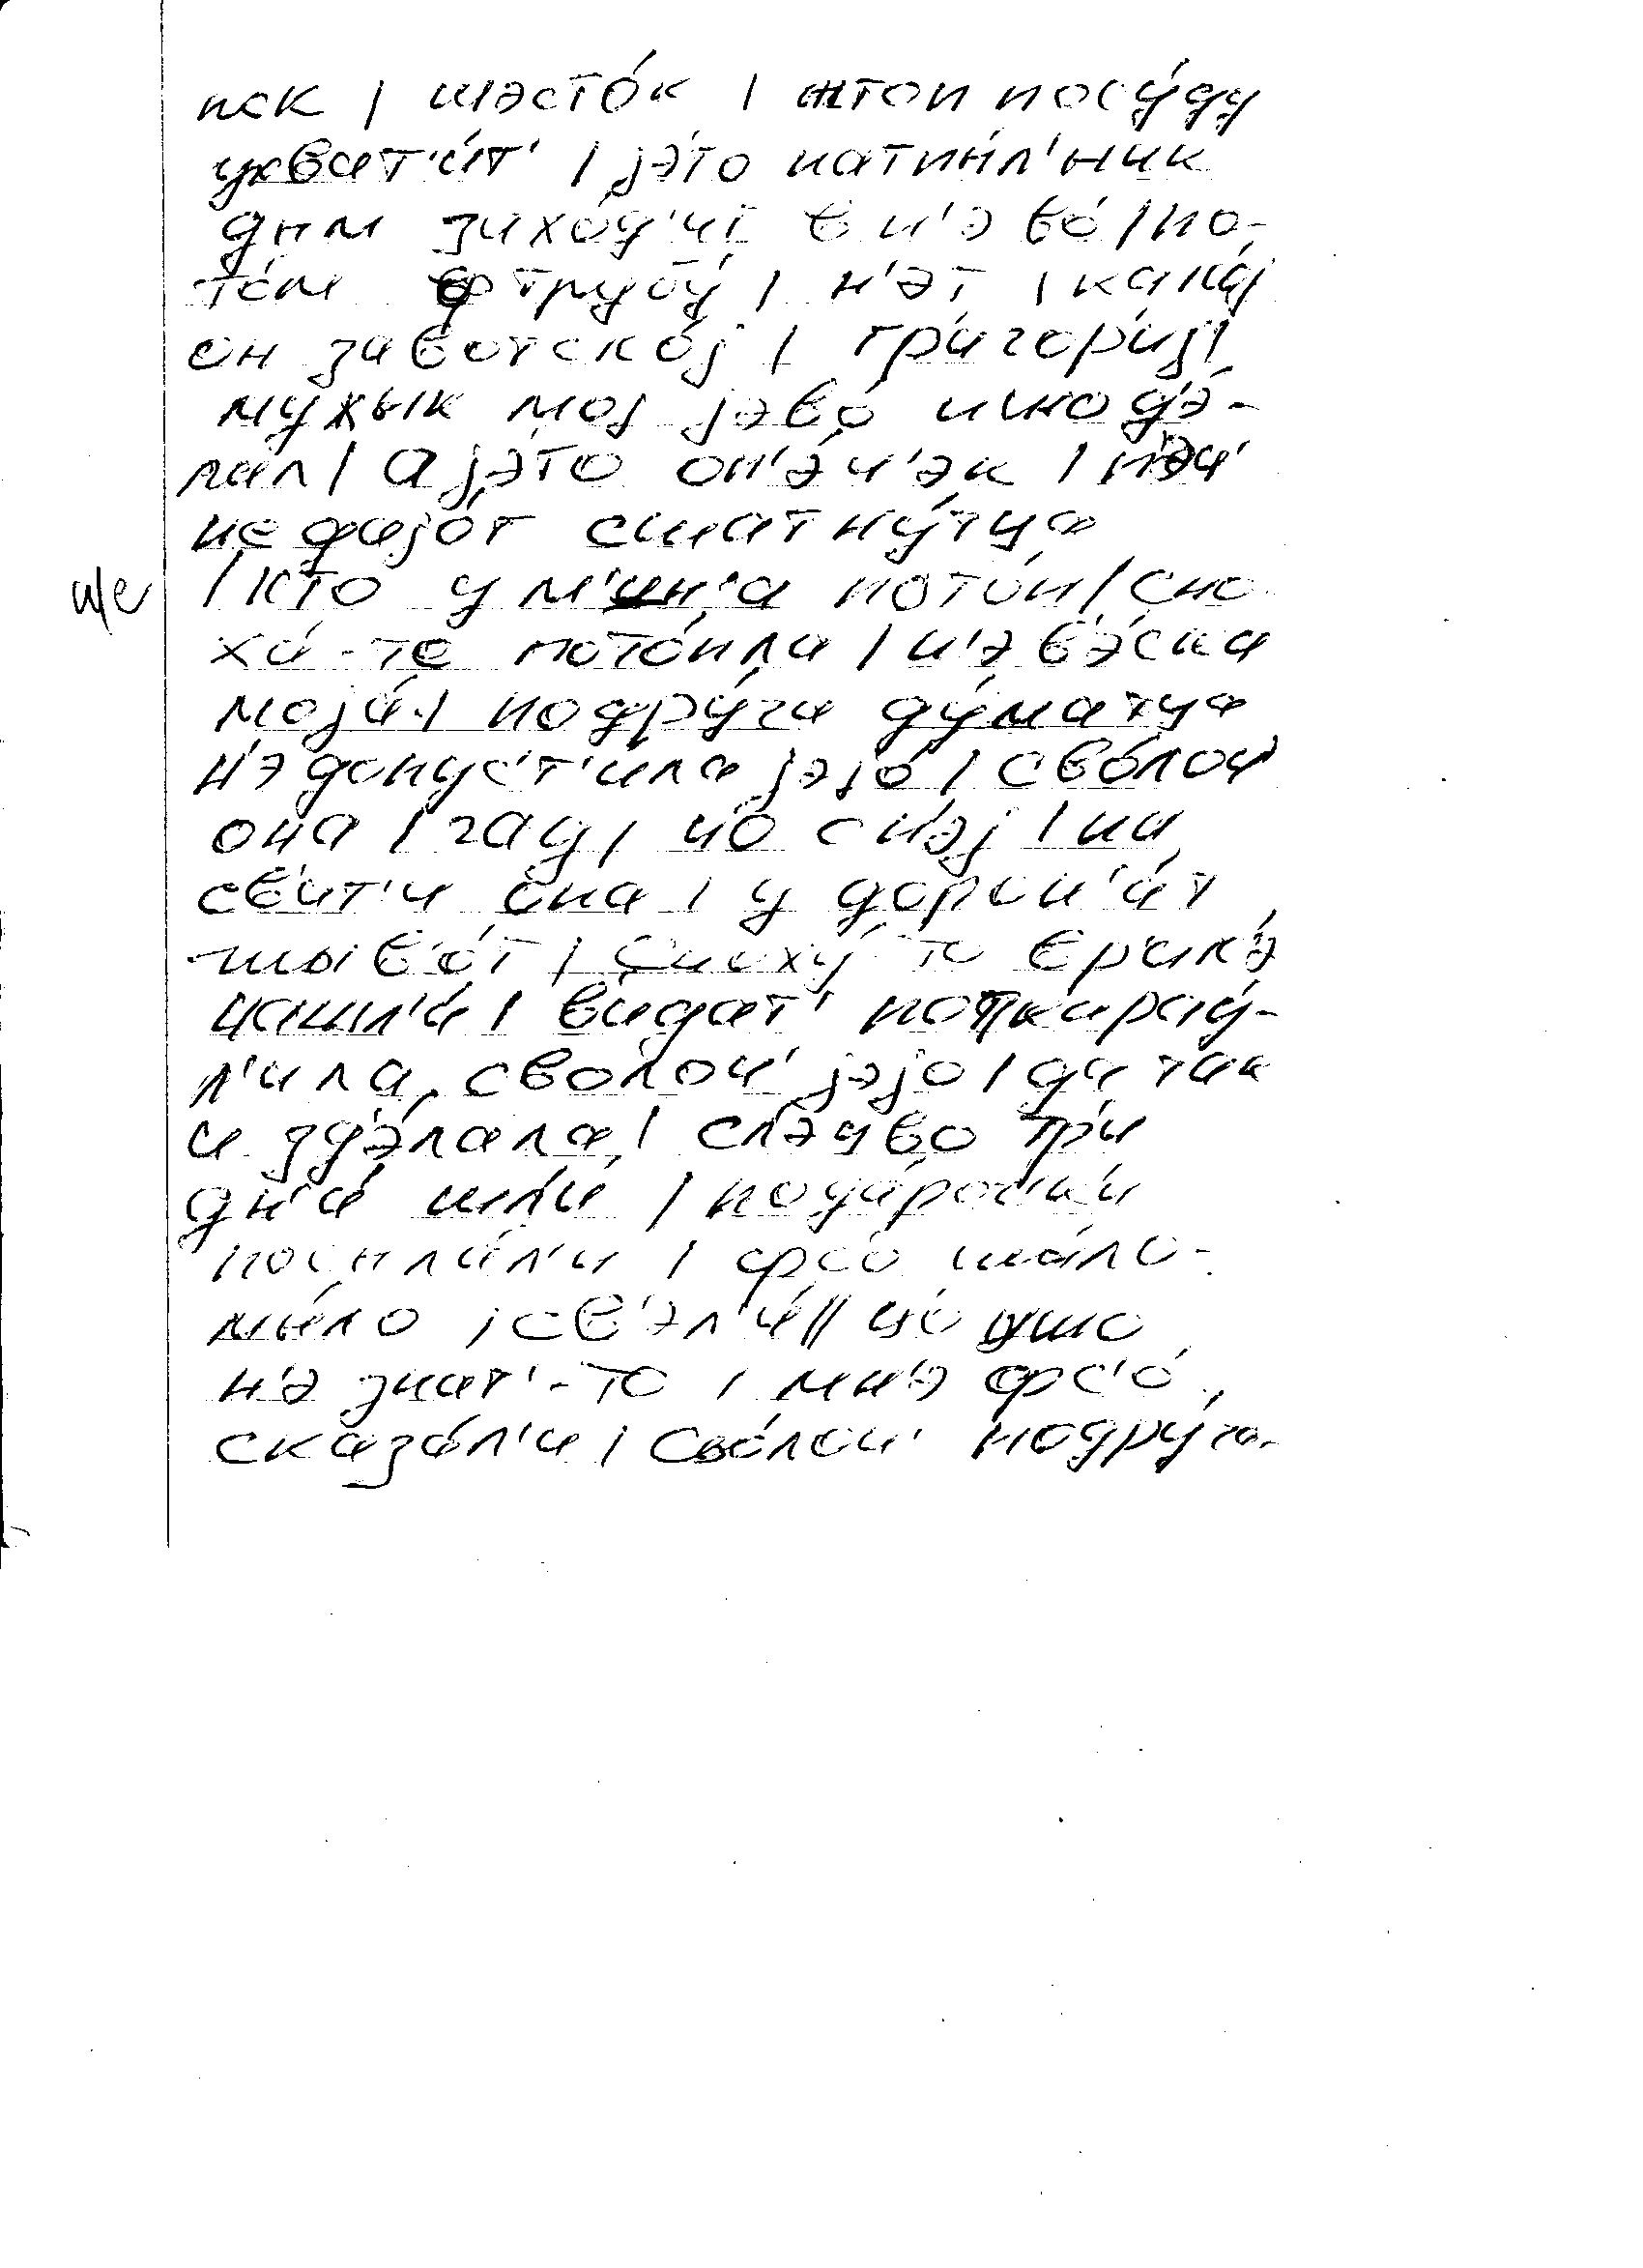 пек / шэсто́к / штоп посу́ду
ухват'и́т' / jэ́то патпы́л'ник
дым захо́д'ит в н'эво́ / по-
то́м ф трубу́ / н'эт / какój
он завотскоj / Григориj /
мужык моj jэво́ и под'э́-
лал / а jэ́то оп'э́ч'эк / п'эч'
не даjо́т сшатну́тца
/ кто у м'ин'а́ пото́п / сно
ха́-то пото́пла / н'эв'э́ска
моjа́ / подру́га ду́матца
н'э допус'т'и́ла jэjо́ / сво́лоч'
она / гад / чо с н'эj / на
св'и́т'и она / у доро́н'ат
жыв'о́т / сноху́ то
нашл'и́ / видат' поткарау́-
л'ила сволоч' jэjо / да так
и зд'э́лала / сл'э́дво тр'и
дн'а́ шл'и́ / пода́рочк'и
посыла́л'и / фс'о шы́ло-
мы́ло / св'эл'и́ // чо ушо
н'э знат'-то / мн'э фс'о́
сказа́л'и / сво́лоч' подру́га-